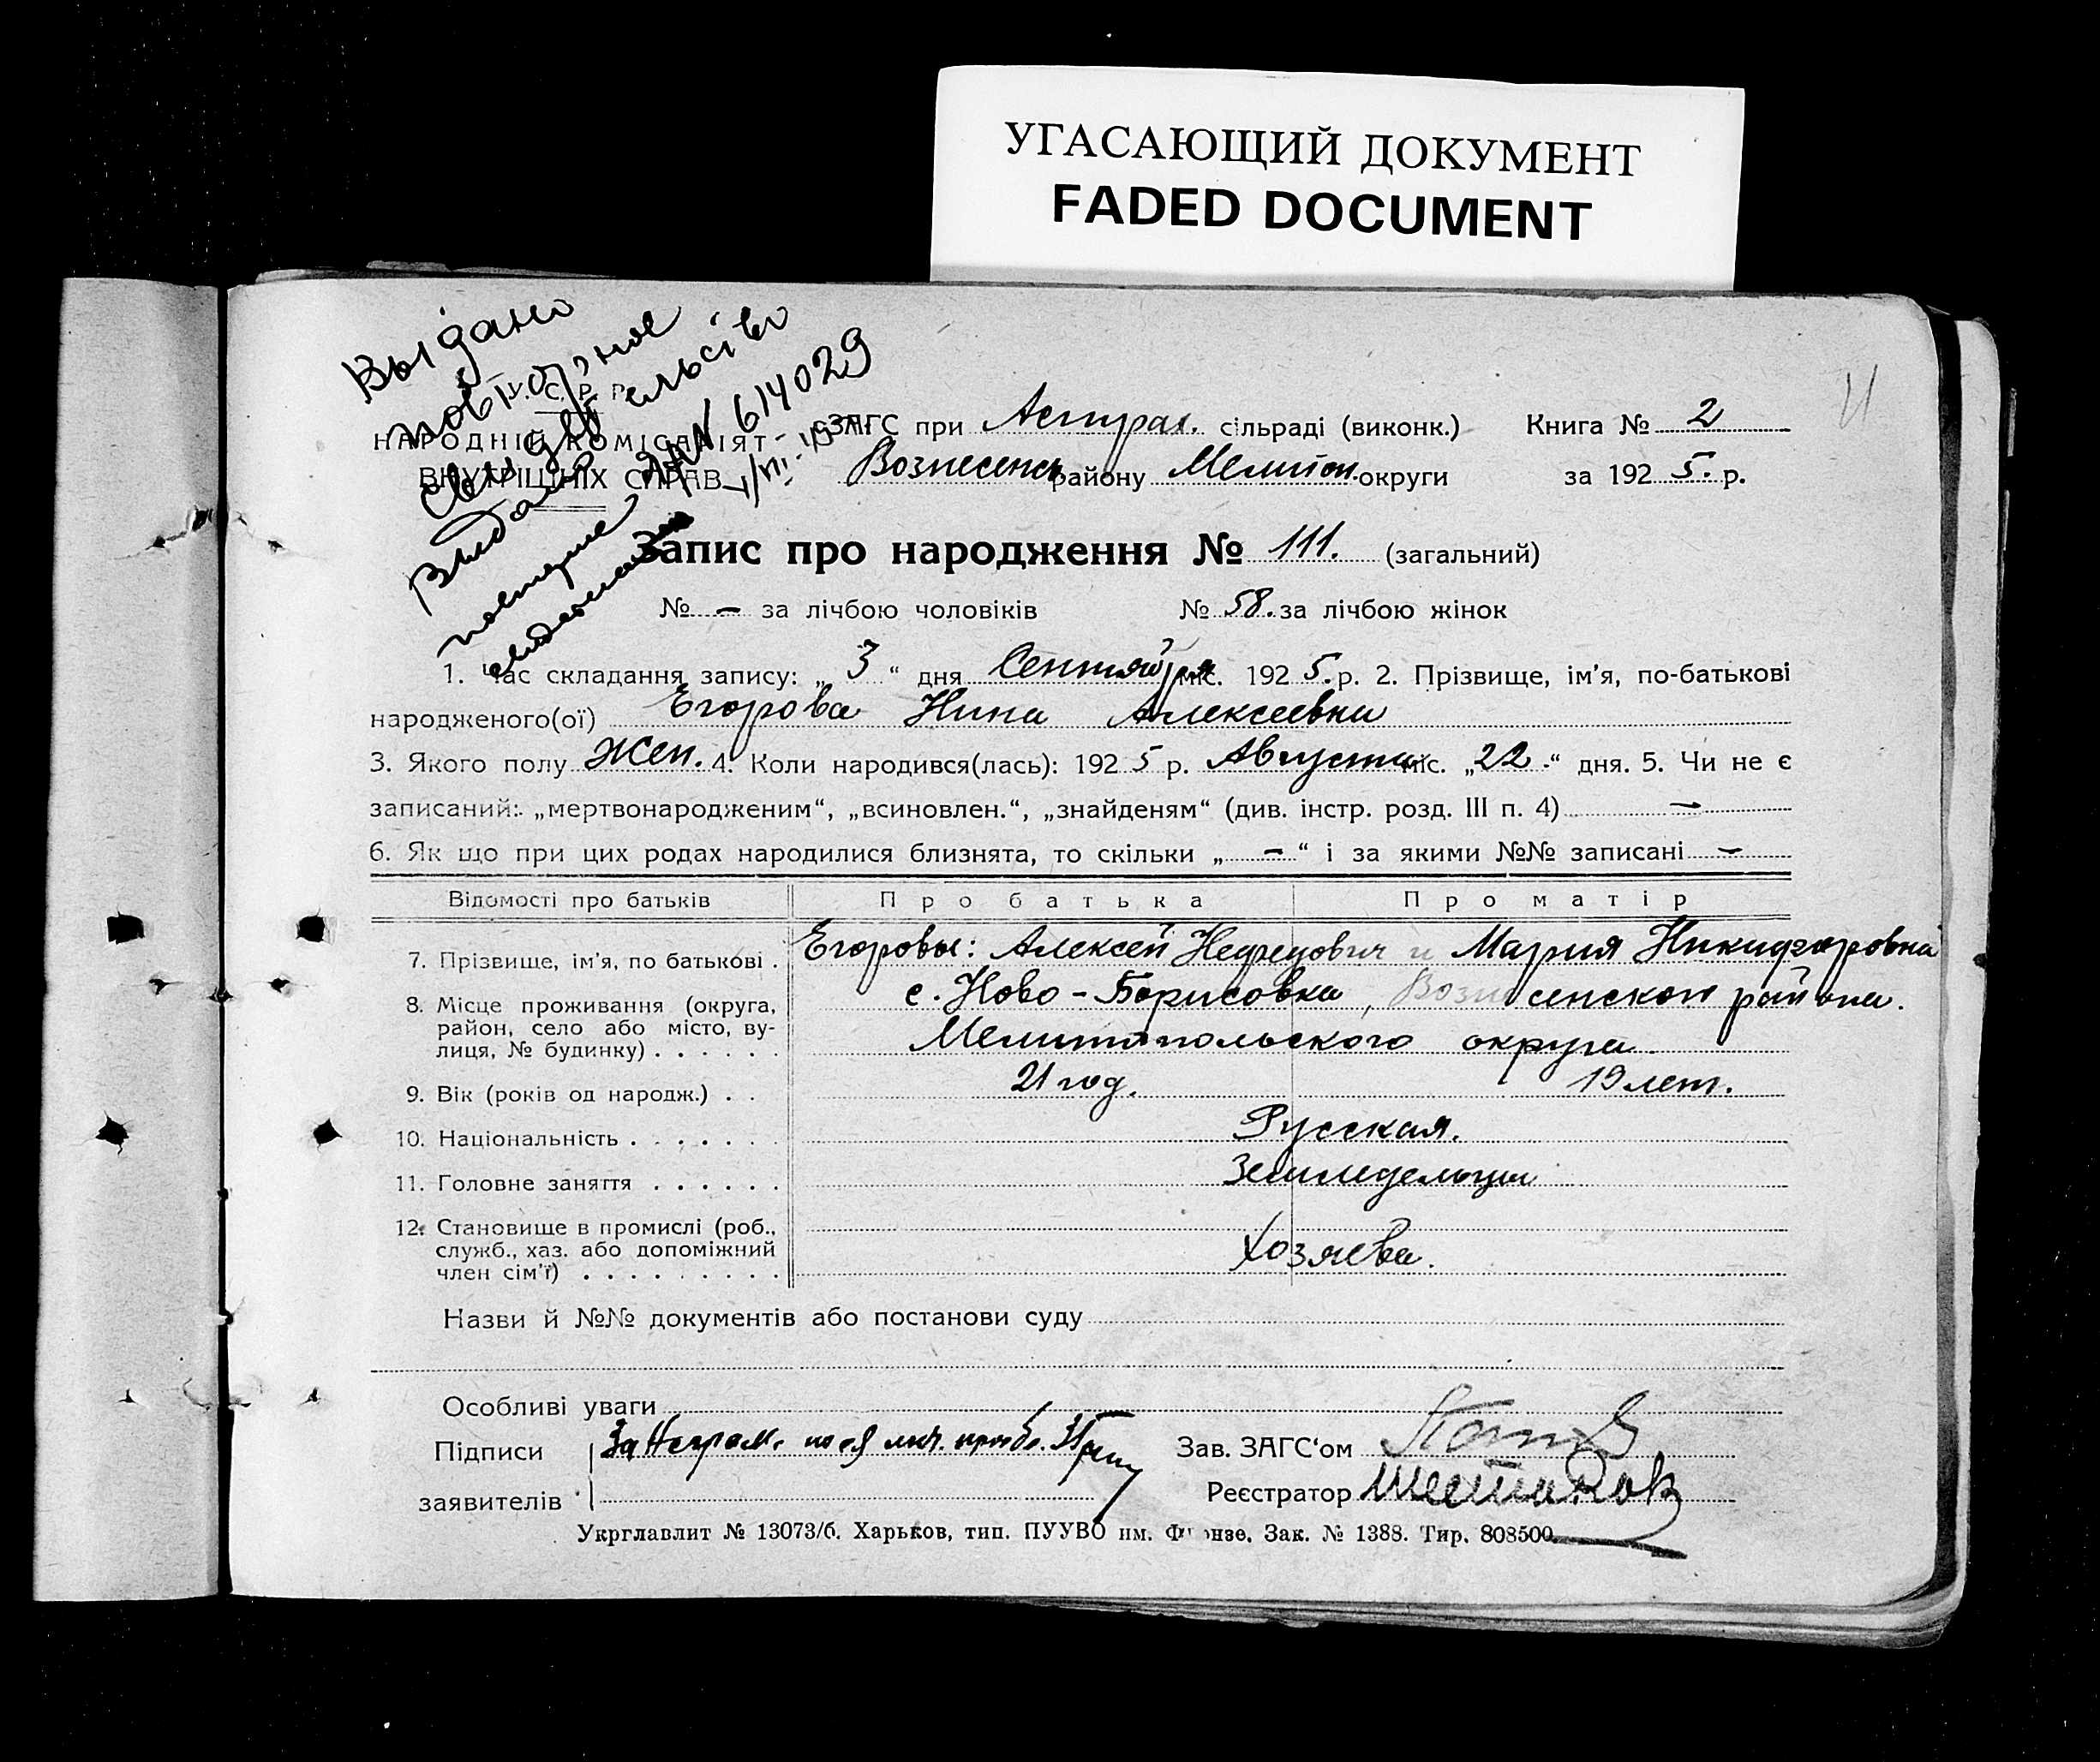 УГАСАЮЩИЙ ДОКУМЕНТ
FADED DOCUMENT
Выдано
повторное
свидетельство
№ 614029
У. С. Р. Р.
НАРОДНІЙ КОМІСАРІЯТ
ВНУТРІШНІХ СПРАВ
ЗАГС при Астрах. сільраді (виконк.) Книга № 2
Вознесенск району Мелитоп. округи за 1925. р.
Запис про народження № 111. (загальний)
№ – за лічбою чоловіків № 58. за лічбою жінок
1. Час складання запису: „ 3 “ дня Сентября міс. 1925. р. 2. Прізвище, ім'я, по-батькові
народженого(ої) Егорова Нина Алексеевна
3. Якого полу Жен. 4. Коли народився(лась): 1925 р. Августа міс. „22.“ дня. 5. Чи не є
записаний: „мертвонародженим“, „всиновлен.“, „знайденям“ (див. інстр. розд. III п. 4) –
6. Як що при цих родах народилися близнята, то скільки „ – “ і за якими №№ записані –
Відомості про батьків Про батька Про матір
7. Прізвище, ім'я, по батькові . Егоровы: Алексей и Мария Никифоровна
8. Місце проживання (округа, с. Ново-Борисовка, Вознесенского района.
район, село або місто, ву-
лиця, № будинку) . . . . . . Мелитопольского округа.
9. Вік (років од народж.) . . 21 год. 19 лет.
10. Національність . . . . . . . Русская.
11. Головне заняття . . . . . . Земледельцы
12. Становище в промислі (роб.,
служб., хаз. або допоміжний Хозяева.
член сім'ї) . . . . . . . . .
Назви й №№ документів або постанови суду
Особливі уваги
Підписи За неграм.
Зав. ЗАГС‘ом
заявителів
Реєстратор Шестаков
Укрглавлит № 13073/б. Харьков, тип. ПУУВО им. Фрунзе. Зак. № 1388. Тир. 808500.